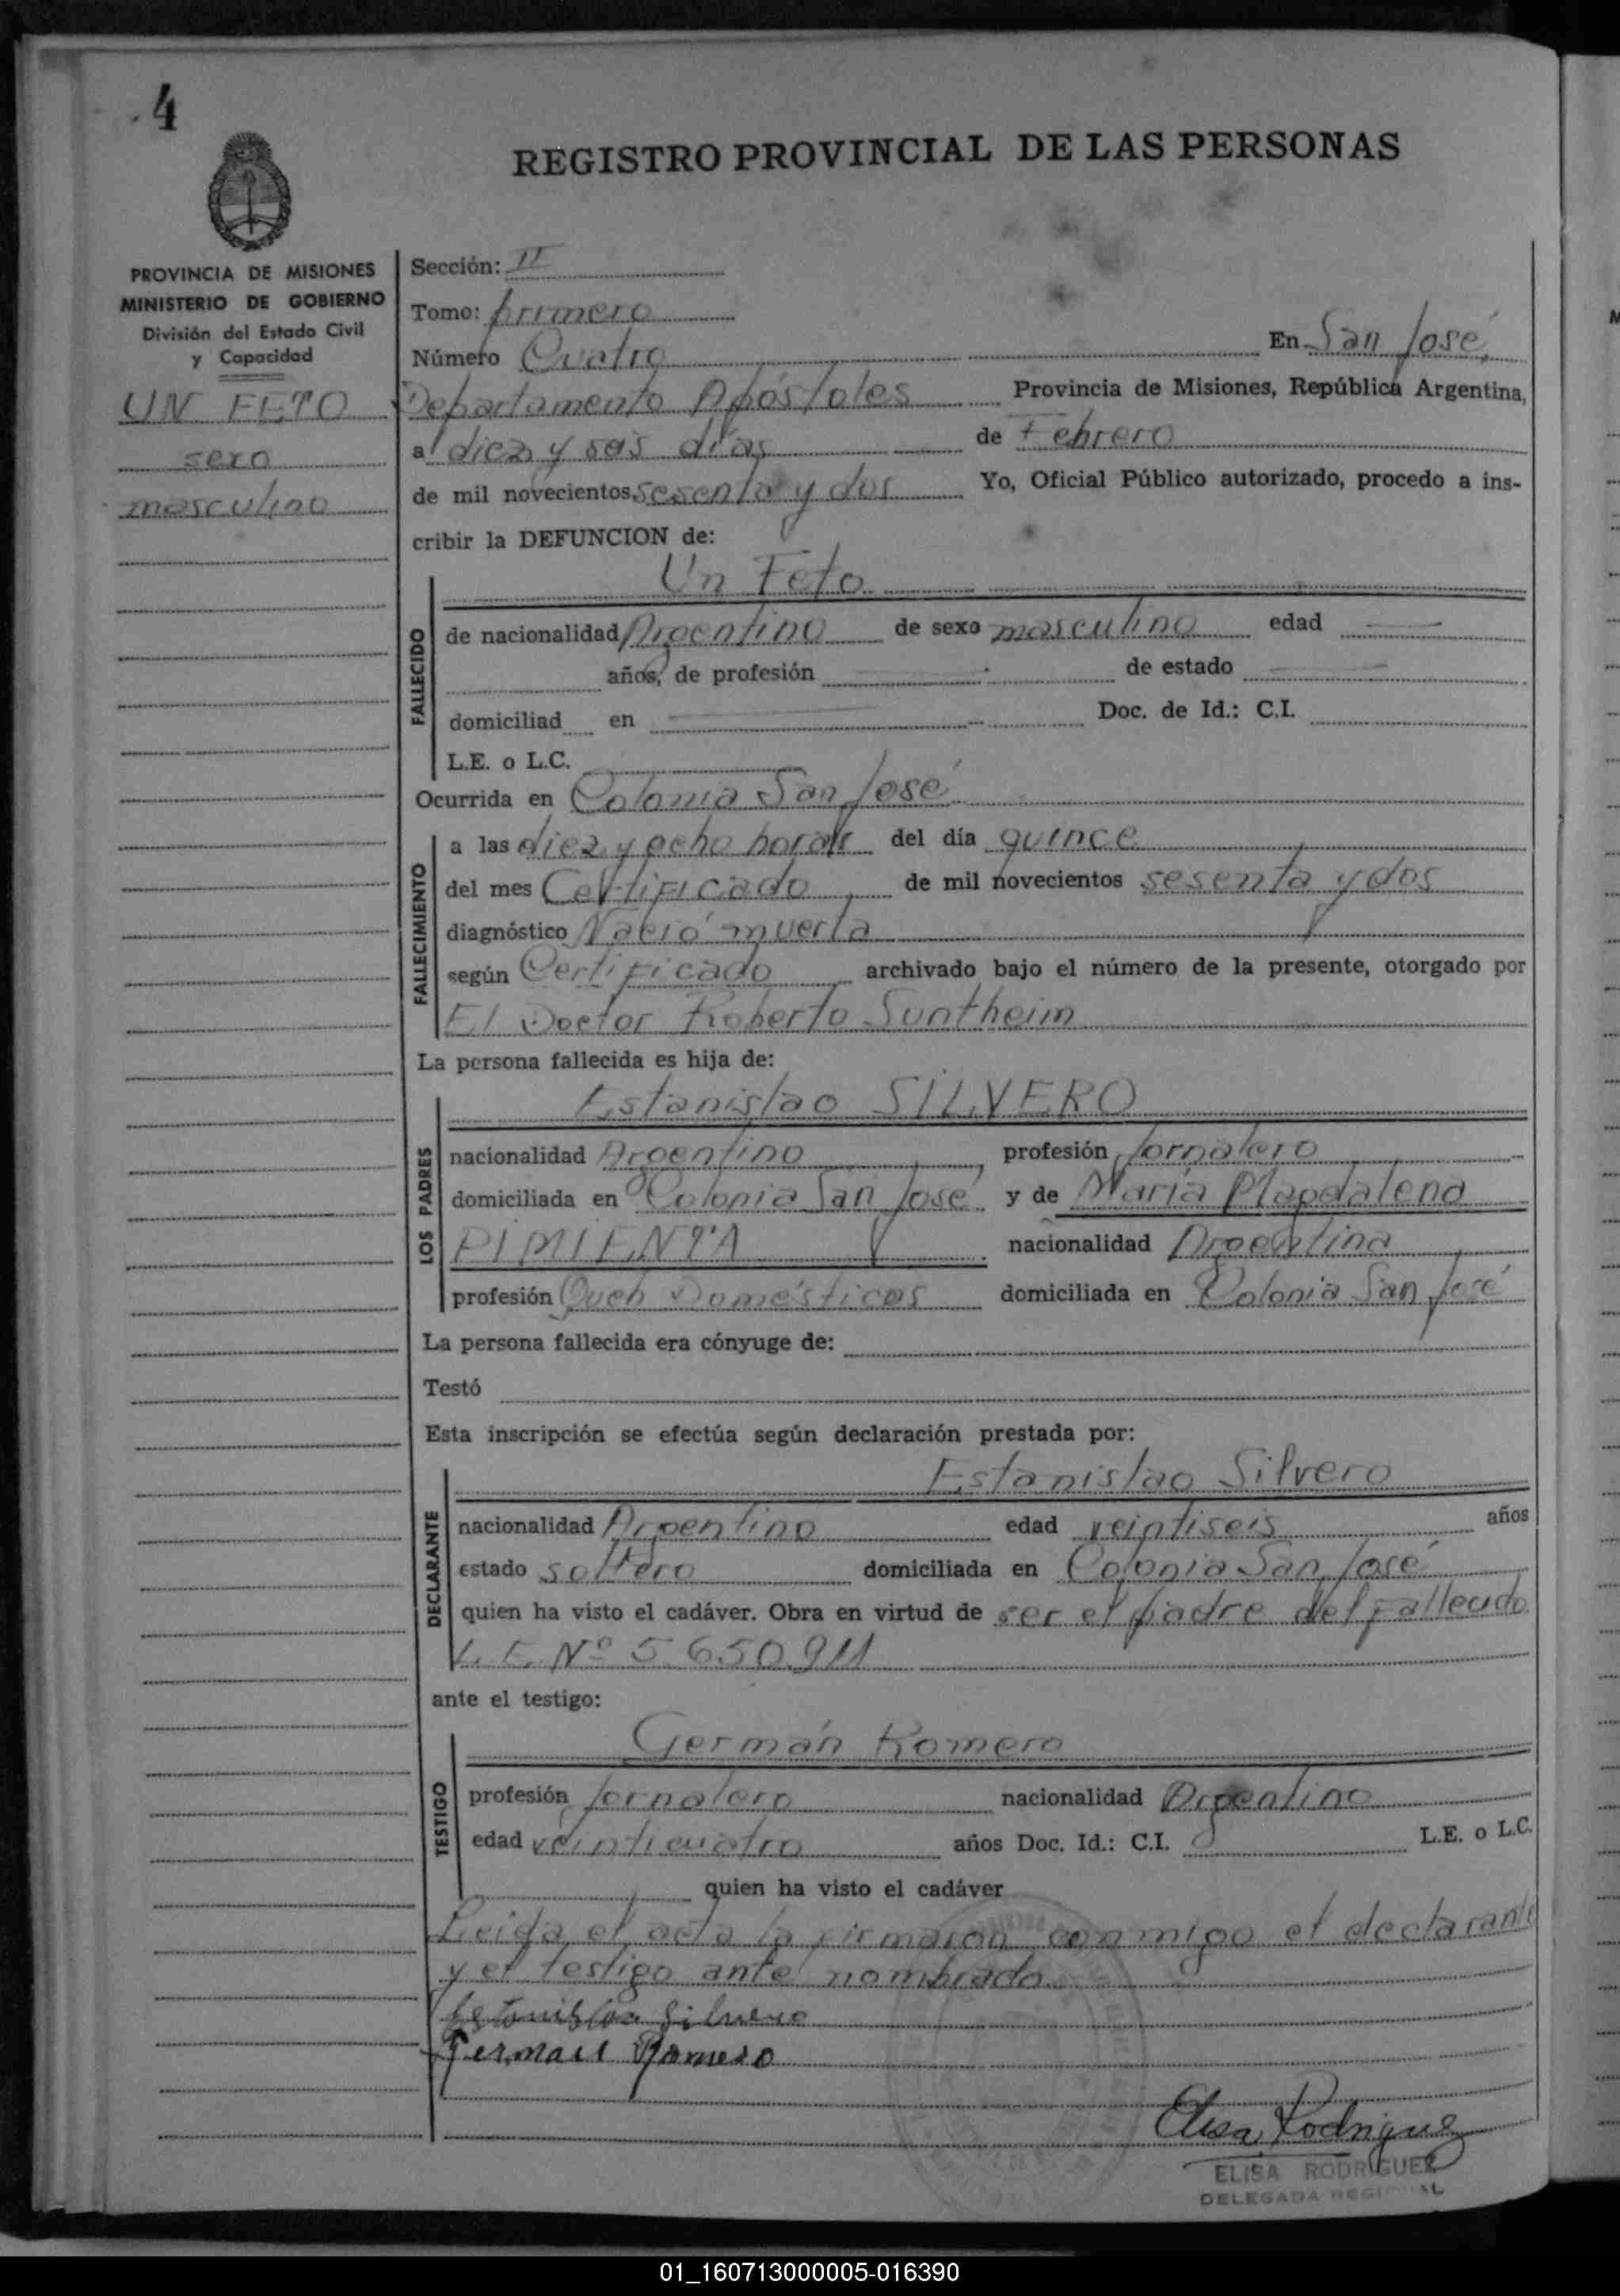 4
REGISTRO PROVINCIAL DE LAS PERSONAS
PROVINCIA DE MISIONES
MINISTERIO DE GOBIERNO
División del Estado Civil
y Capacidad
UN FETO
sexo
masculino
Sección: II
Tomo: primero
Número Cuatro En San José,
Departamento Apóstoles Provincia de Misiones, República Argentina,
a diez y seis días de Febrero
de mil novecientos sesenta y dos Yo, Oficial Público autorizado, procedo a ins-
cribir la DEFUNCION de:
Un Feto
FALLECIDO
de nacionalidad Argentino de sexo masculino edad
años, de profesión de estado
domiciliad en Doc. de Id.: C.I.
L.E. o L.C.
Ocurrida en Colonia San José
FALLECIMIENTO
a las diez y ocho horas del día quince
del mes Certificado de mil novecientos sesenta y dos
diagnóstico Nació muerta
según Certificado archivado bajo el número de la presente, otorgado por
El Doctor Roberto Suntheim
La persona fallecida es hija de:
Estanislao SILVERO
LOS PADRES
nacionalidad Argentino profesión Jornalero
domiciliada en Colonia San José y de María Magdalena
PIMIENTA nacionalidad Argentina
profesión Queh Domésticos domiciliada en Colonia San José
La persona fallecida era cónyuge de:
Testó
Esta inscripción se efectúa según declaración prestada por:
Estanislao Silvero
DECLARANTE
nacionalidad Argentino edad veintiseis años
estado soltero domiciliada en Colonia San José
quien ha visto el cadáver. Obra en virtud de ser el padre del Fallecido
L.E. Nº 5650911
ante el testigo:
Germán Romero
TESTIGO
profesión Jornalero nacionalidad Argentino
edad veinticuatro años Doc. Id.: C.I. L.E. o L.C.
quien ha visto el cadáver
Leida el acta la firmaron conmigo el declarante
y el testigo ante nombrado
Estanislao Silvero
German Romero
Elisa Rodriguez
ELISA RODRIGUEZ
DELEGADA REGIONAL
01_160713000005-016390